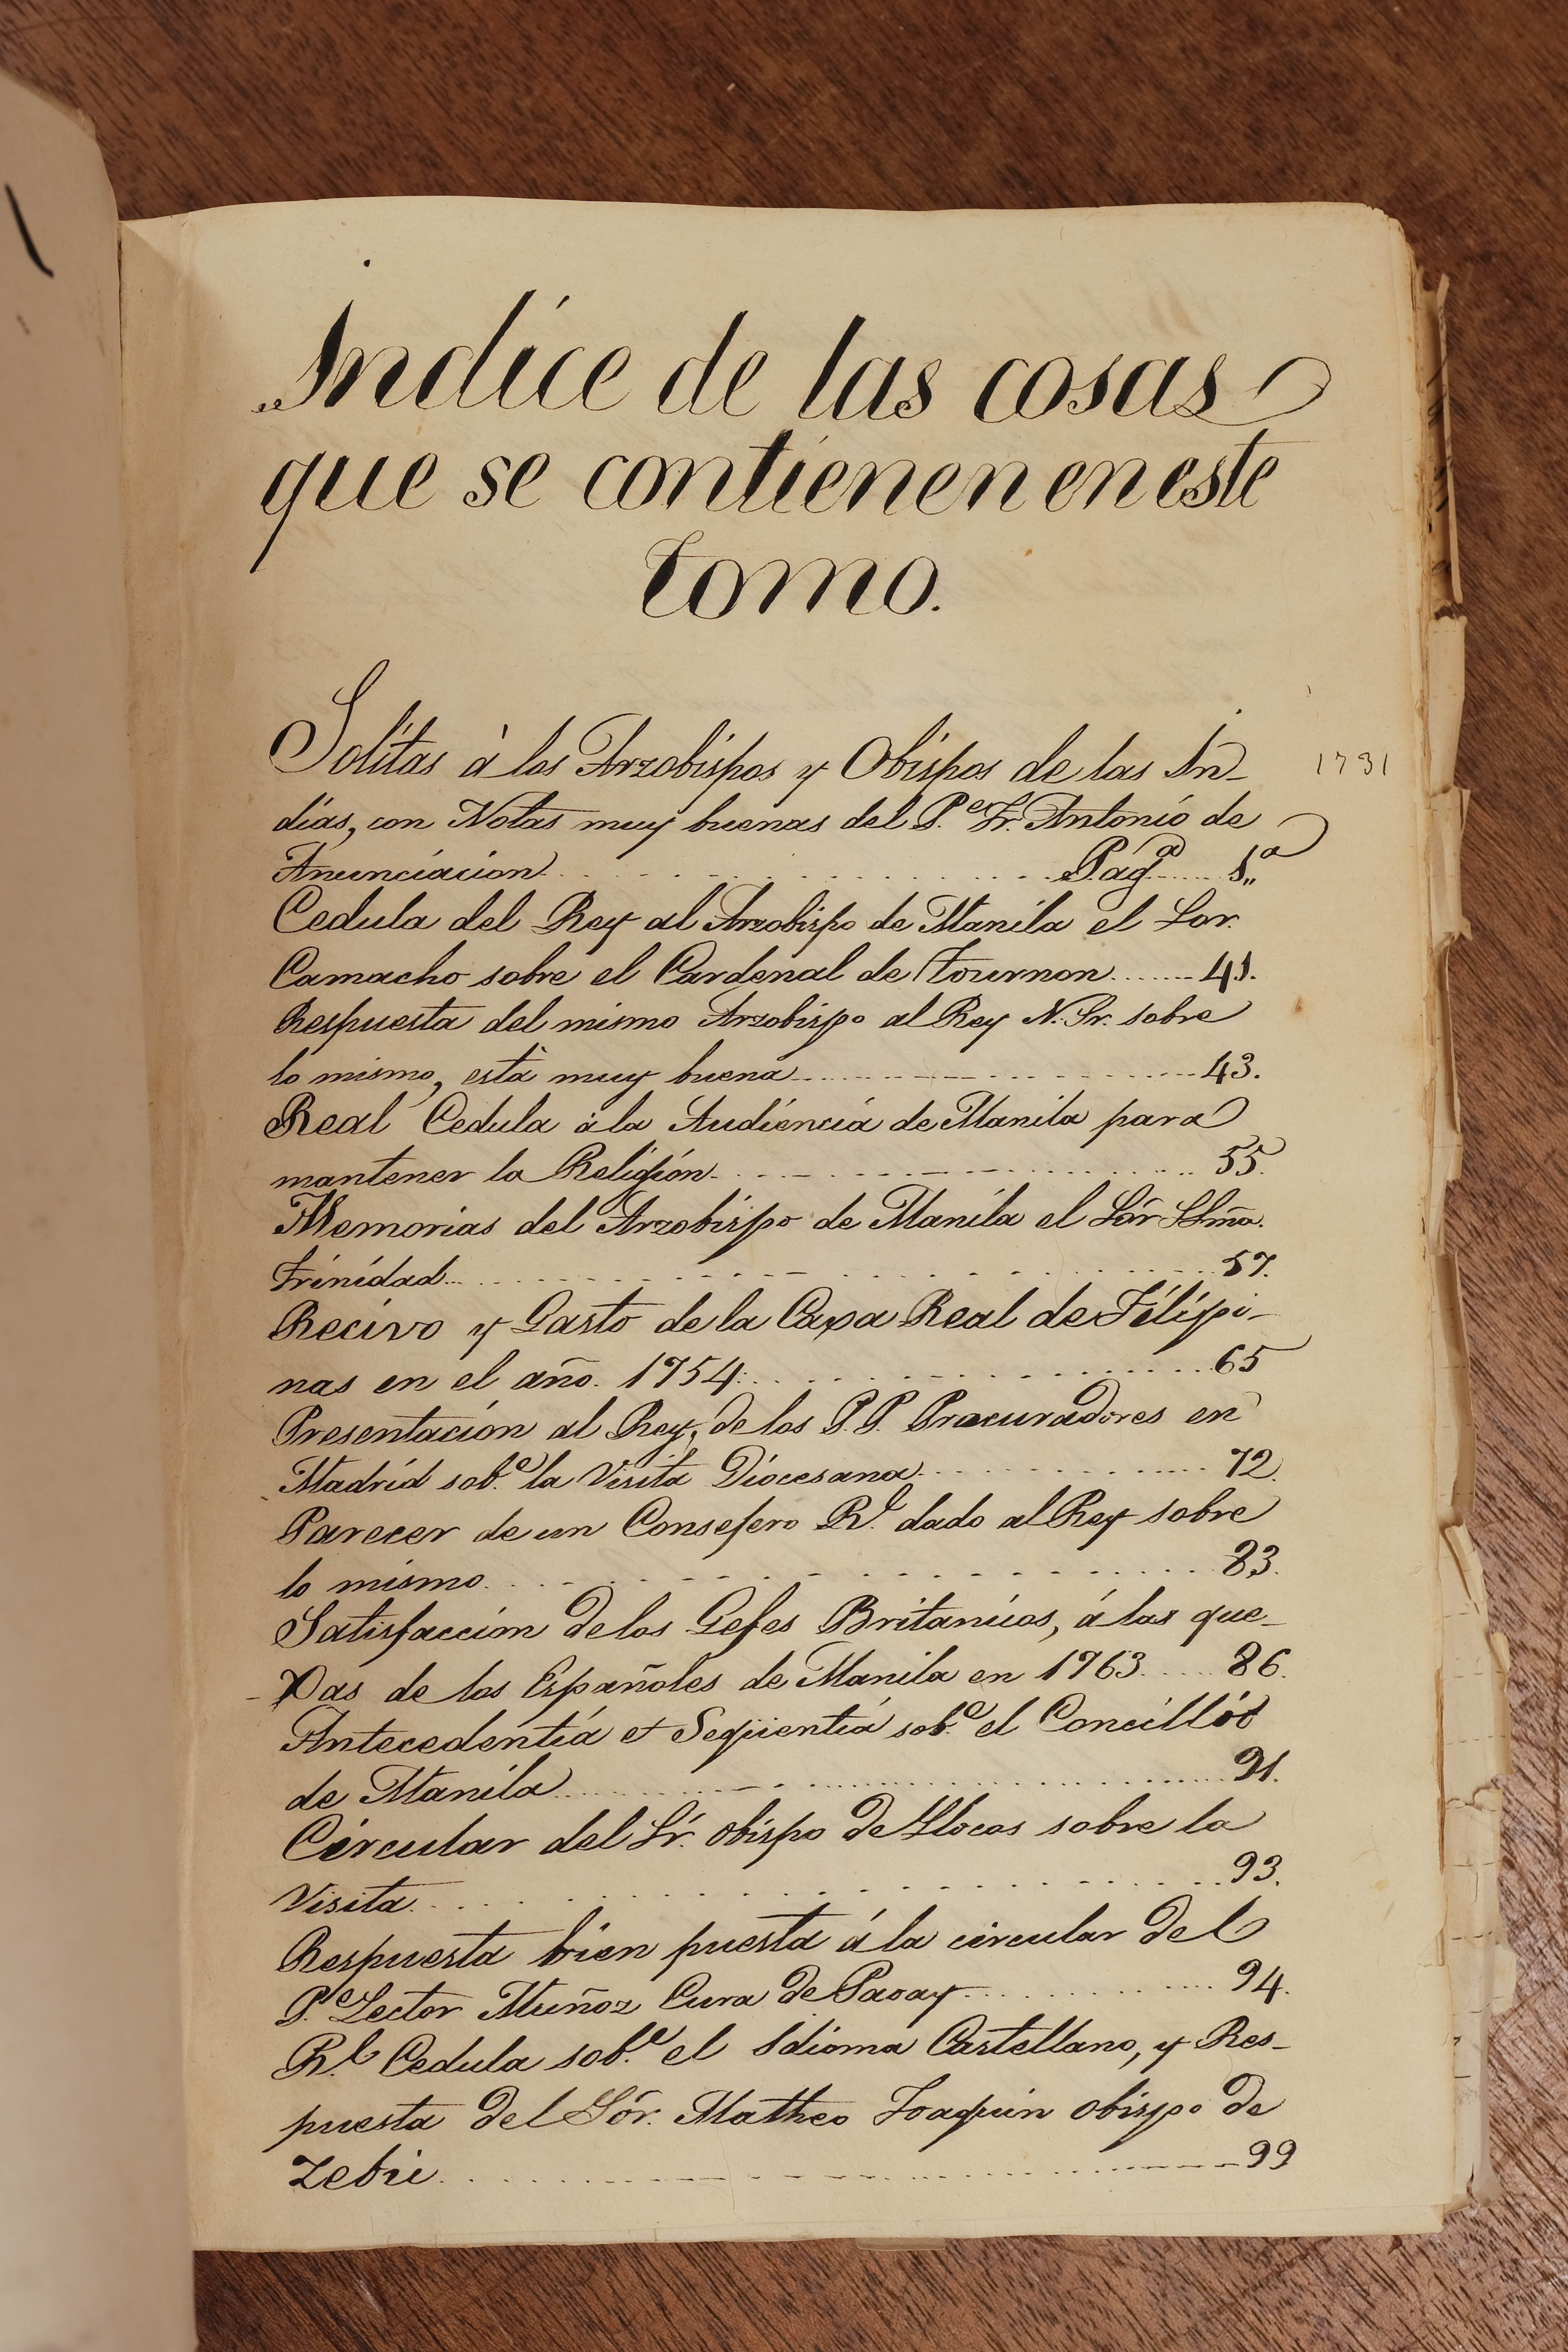 Indice de las cosas
que se contienen en este
tomo.
Solitas à los Arzobispos y Obispos de las In- 1731
dias, con Notas muy buenas del P.e Fr. Antonio de
Anunciacion. Pág.a 1.a
Cedula del Rey al Arzobispo de Manila el Sor.
Camacho sobre el Cardenal de Tournon 41.
Respuesta del mismo Arzobispo al Rey N. Sr. sobre
lo mismo, està muy buena 43.
Real Cedula à la Audiencia de Manila para
mantener la Religión. 55.
Memorias del Arzobispo de Manila el Sór Illmo.
Trinidad 57.
Recivo y Gasto de la Caxa Real de Filipi-
nas en el año. 1754. 65
Presentación al Rey, de los P.P. Procuradores en
Madrid sob.e la Visita Diocesana 72.
Parecer de un Consejero R.l dado al Rey sobre
lo mismo. 83.
Satisfacción de los Gefes Britanicos, á las que-
xas de los Españoles de Manila en 1763. 86.
Antecedentia et Seqüentia sob.e el Concilio
de Manila 91.
Circular del Sr. obispo de Ylocos sobre la
Visita. 93.
Respuesta bien puesta á la circular del
P.e Lector Muñoz Cura de Paoay 94.
R.l Cedula sob.e el Idioma Castellano, y Res-
puesta del Sór. Matheo Joaquin obispo de
Zebú 99